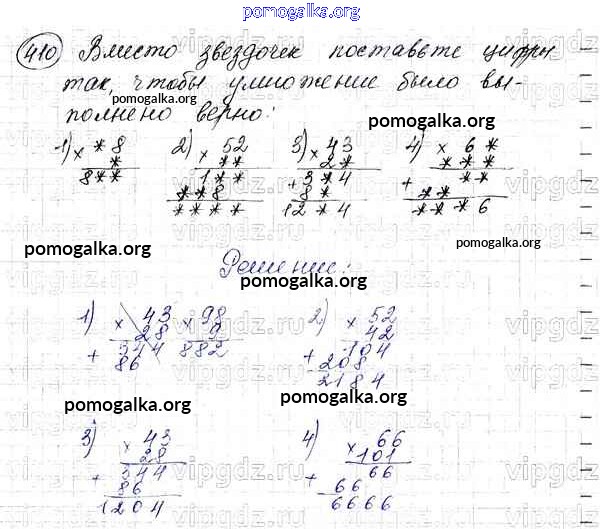 pomogalka.org
410 Вместо звездочек поставьте цифры
так, чтобы умножение было вы-
pomogalka.org
полнено верно:
pomogalka.org
1) × *8
*
8**
2) × 52
**
1**
**8
****
3) × 43
2*
+ 3*4
8*
12*4
4) × 6*
***
+ **
**
***6
pomogalka.org
pomogalka.org
Решение:
1) × 43
28
+ 344
86
× 98
9
882
2) × 52
42
+ 104
208
2184
pomogalka.org
pomogalka.org
3) × 43
28
+ 344
86
1204
4) × 66
101
+ 66
66
6666
vipgdz.ru
vipgdz.ru
vipgdz.ru
vipgdz.ru